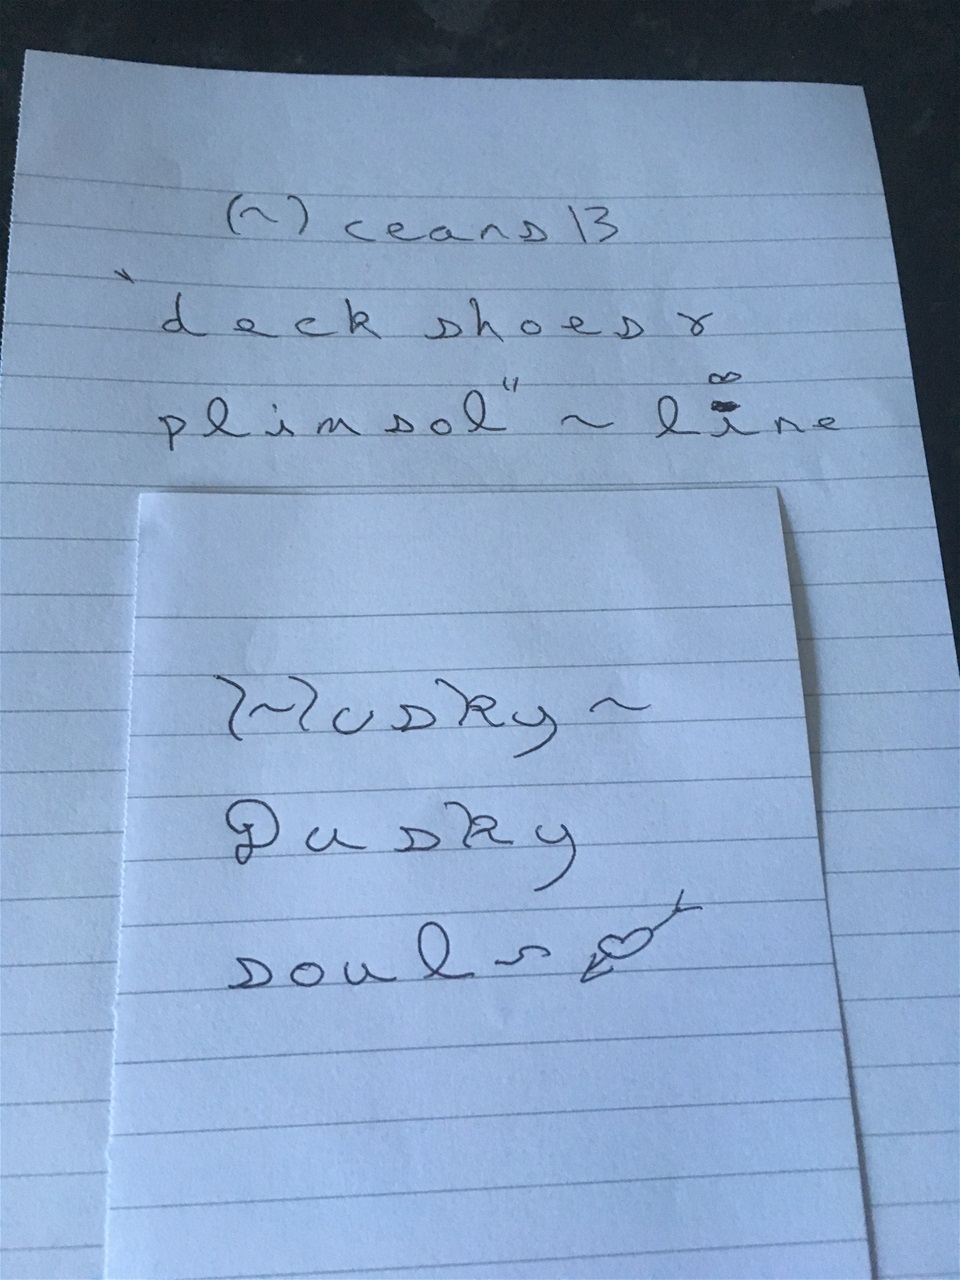 (~)ceans 13
"deck shoes r
plimsol" ~ line
Musky ~
Dusky
souls